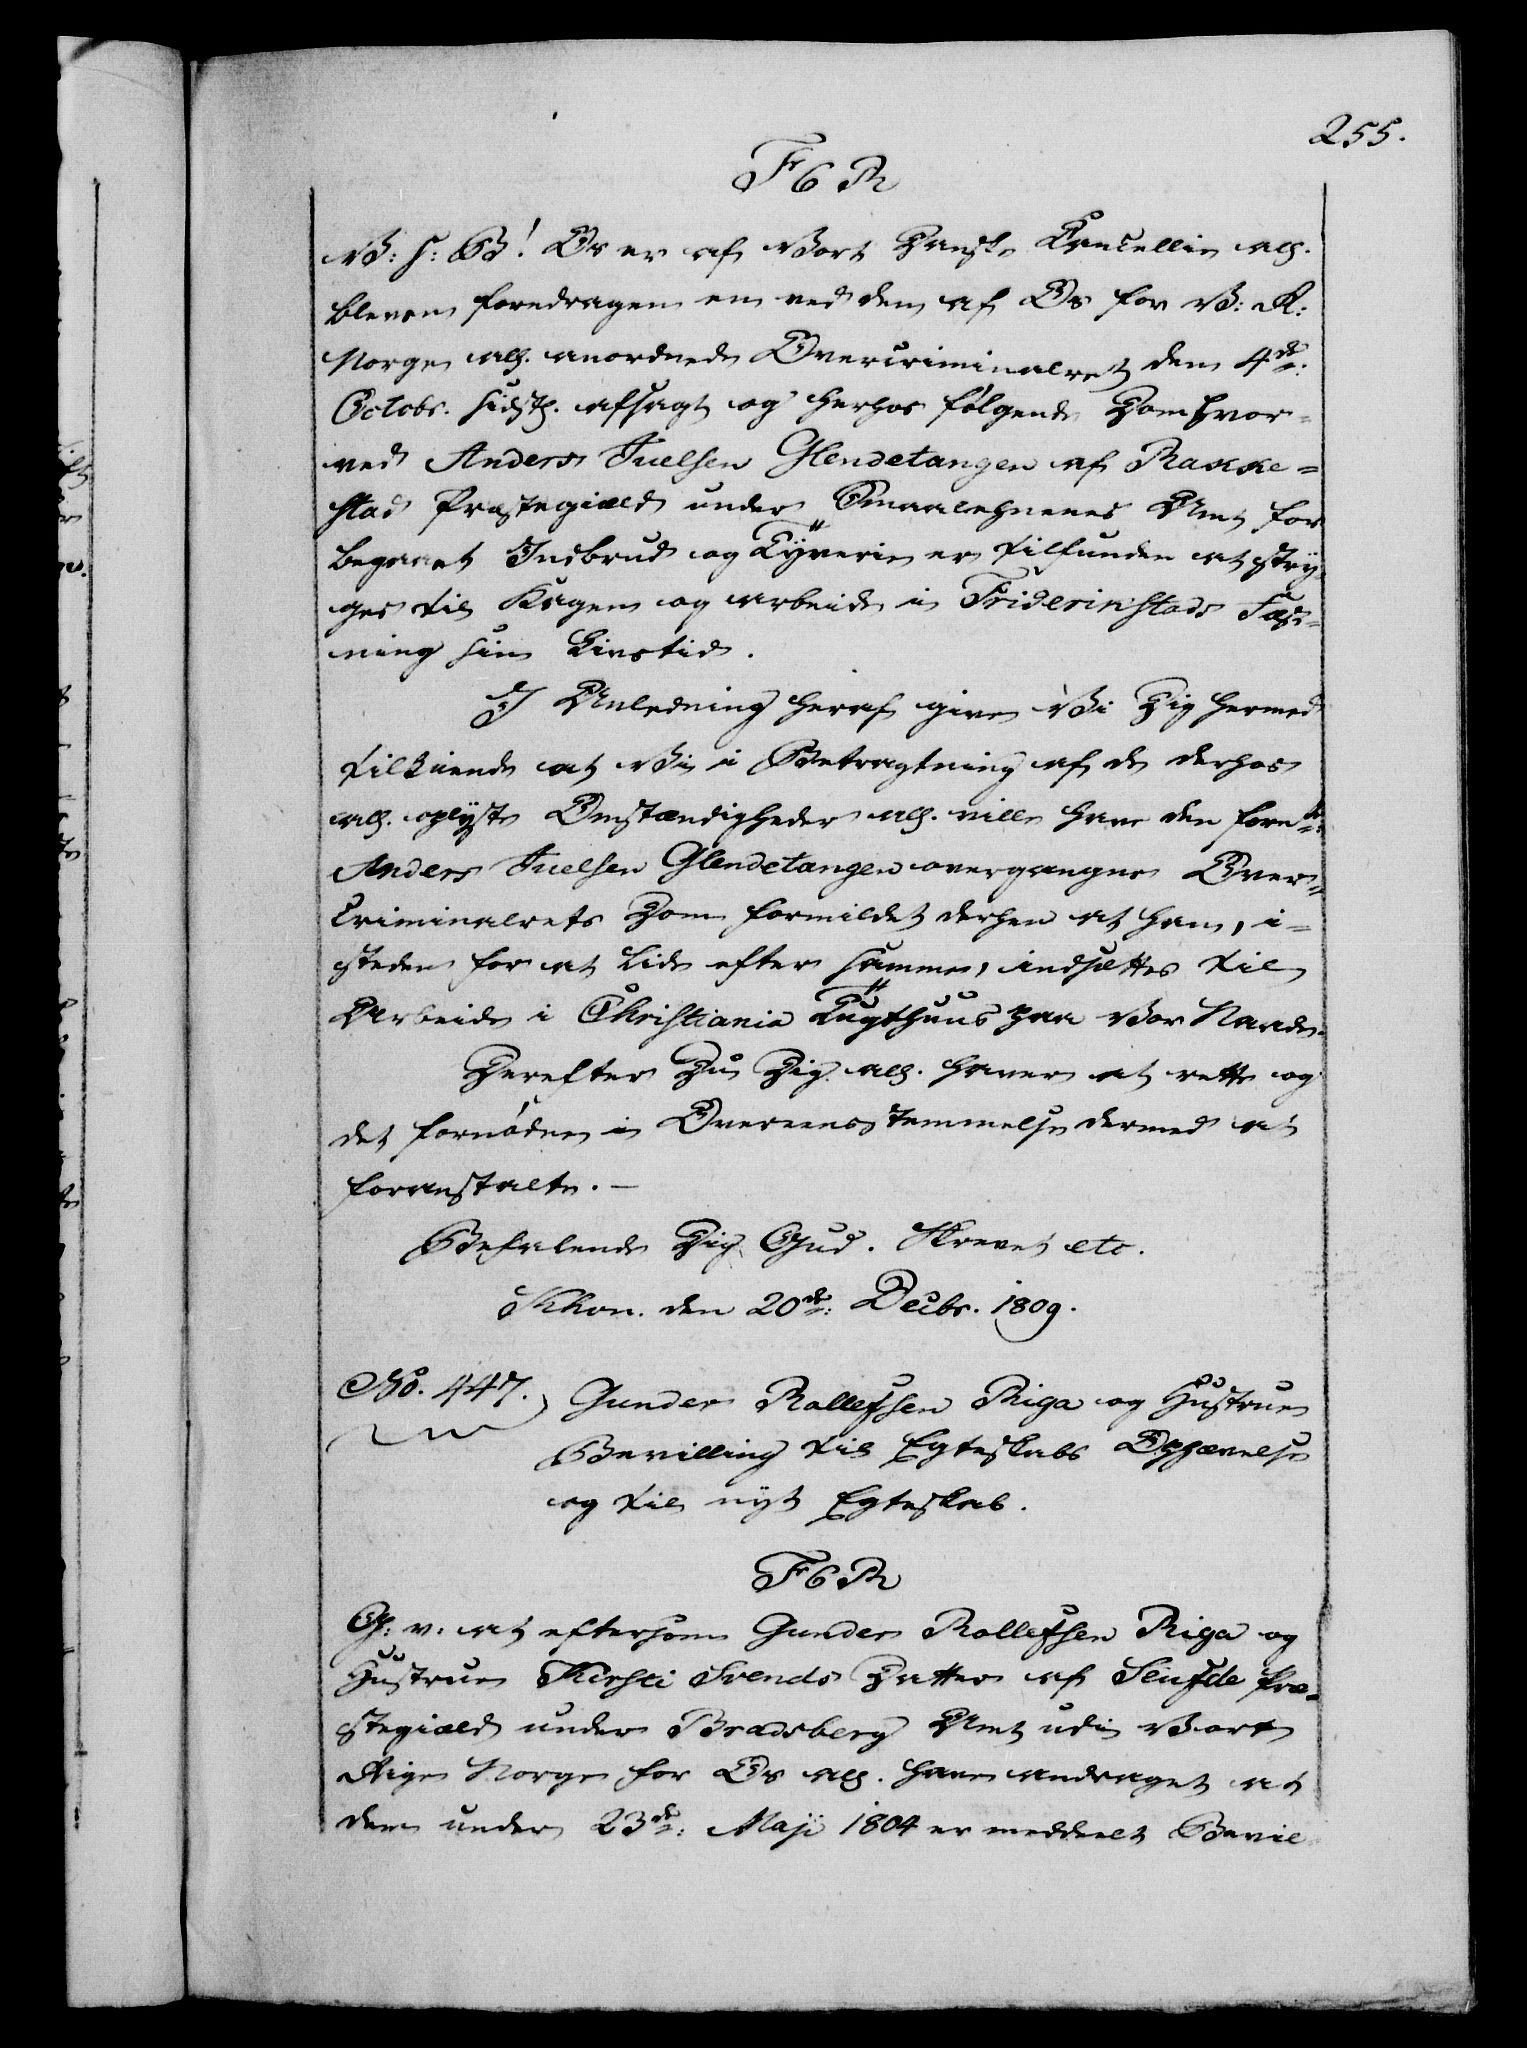 255.
F 6 R
V: S: G! Os er af Vort Danske Cancellie all.
bleven foredragen en ved den af Os for V: R:
Norge all. anordnede Overcriminalret den 4de:
Octobr. sidstl. afsagt og herhos følgende Dom hvor-
ved Anders Juelsen Glendetangen af Rakke-
stad Præstegield under Smaalehnenes Amt for
begaaet Indbrud og Tyverie er tilfunden at stry-
ges til Kagen og arbeide i Fridericstads Fæst-
ning sin Livstid.
I Anledning heraf give Vi Dig hermed
tilkiende at Vi i Betragtning af de derhos
all. oplyste Omstændigheder all. ville have den forn:
Anders Juelsen Glendetangen overgangne Over-
criminalrets Dom formildet derhen at han, i-
steden for at lide efter samme, indsættes til
Arbeide i Christiania Tugthuus paa Vor Naade.
Derefter Du Dig all. haver at rette og
det fornødne i Overeensstemmelse dermed at
foranstalte. —
Befalende Dig Gud. Skrevet etc.
Kkbn. den 20de: Decbr. 1809.
No. 447.) Gunder Rollefsen Riga og Hustrue
Bevilling til Egteskabs Ophævelse
og til nyt Egteskab.
F 6 R
G: v: at eftersom Gunder Rollefsen Riga og
Hustrue Kirsti Svends Datter af Seufde Præ-
stegield under Bradsberg Amt udi Vort
Rige Norge for Os all. have andraget at
dem under 23de: Maji 1804 er meddeelt Bevil-